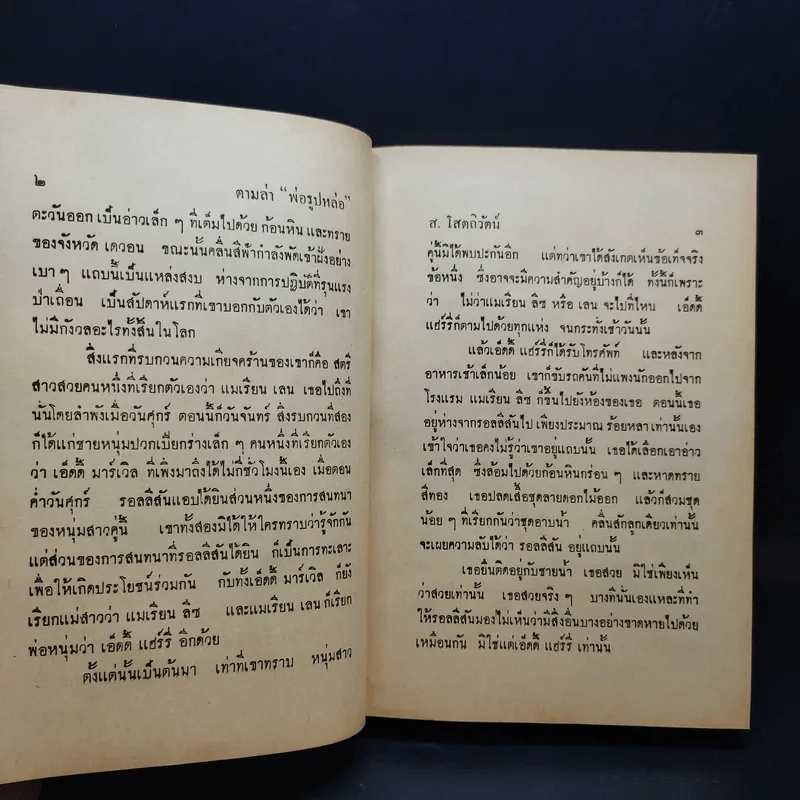 ๒
ตามล่า “พ่อรูปหล่อ”
ตะวันออก เป็นอ่าวเล็ก ๆ ที่เต็มไปด้วย ก้อนหิน และทราย
ของจังหวัด เดวอน ขณะนั้นคลื่นสีฟ้ากำลังพัดเข้าฝั่งอย่าง
เบา ๆ แถบนี้เป็นแหล่งสงบ ห่างจากการปฏิบัติที่รุนแรง
ป่าเถื่อน เป็นสัปดาห์แรกที่เขาบอกกับตัวเองได้ว่า เขา
ไม่มีกังวลอะไรทั้งสิ้นในโลก
สิ่งแรกที่รบกวนความเกียจคร้านของเขาก็คือ สตรี
สาวสวยคนหนึ่งที่เรียกตัวเองว่า แมเรียน เลน เธอไปถึงที่
นั่นโดยลำพังเมื่อวันศุกร์ ตอนนี้ก็วันจันทร์ สิ่งรบกวนที่สอง
ก็ได้แก่ชายหนุ่มปวกเปียกร่างเล็ก ๆ คนหนึ่งที่เรียกตัวเอง
ว่า เอ็ดดี้ มาร์เวิล ที่เพิ่งมาถึงได้ไม่กี่ชั่วโมงนี้เอง เมื่อตอน
ค่ำวันศุกร์ รอลลีสันแอบได้ยินส่วนหนึ่งของการสนทนา
ของหนุ่มสาวคู่นี้ เขาทั้งสองมิได้ให้ใครทราบว่ารู้จักกัน
แต่ส่วนของการสนทนาที่รอลลีสันได้ยิน ก็เป็นการทะเลาะ
เพื่อให้เกิดประโยชน์ร่วมกัน กับทั้งเอ็ดดี้ มาร์เวิล ก็ยัง
เรียกแม่สาวว่า แมเรียน ลีซ และแมเรียน เลน ก็เรียก
พ่อหนุ่มว่า เอ็ดดี้ แฮร์รี่ อีกด้วย
ตั้งแต่นั้นเป็นต้นมา เท่าที่เขาทราบ หนุ่มสาว
ส. โสตถิวัตน์
๓
คู่นี้มิได้พบปะกันอีก แต่ทว่าเขาได้สังเกตเห็นข้อเท็จจริง
ข้อหนึ่ง ซึ่งอาจจะมีความสำคัญอยู่บ้างก็ได้ ทั้งนี้ก็เพราะ
ว่า ไม่ว่าแมเรียน ลีซ หรือ เลน จะไปที่ไหน เอ็ดดี้
แฮร์รี่ก็ตามไปด้วยทุกแห่ง จนกระทั่งเช้าวันนั้น
แล้วเอ็ดดี้ แฮร์รี่ก็ได้รับโทรศัพท์ และหลังจาก
อาหารเช้าเล็กน้อย เขาก็ขับรถคันที่ไม่แพงนักออกไปจาก
โรงแรม แมเรียน ลีซ ก็ขึ้นไปยังห้องของเธอ ตอนนี้เธอ
อยู่ห่างจากรอลลีสันไป เพียงประมาณ ร้อยหลา เท่านั้นเอง
เข้าใจว่าเธอคงไม่รู้ว่าเขาอยู่แถบนั้น เธอได้เลือกเอาอ่าว
เล็กที่สุด ซึ่งล้อมไปด้วยก้อนหินกร่อน ๆ และหาดทราย
สีทอง เธอปลดเสื้อชุดลายดอกไม้ออก แล้วก็สวมชุด
น้อย ๆ ที่เรียกกันว่าชุดอาบน้ำ คลื่นสักลูกเดียวเท่านั้น
จะเผยความลับได้ว่า รอลลีสัน อยู่แถบนั้น
เธอยืนติดอยู่กับชายน้ำ เธอสวย มิใช่เพียงเห็น
ว่าสวยเท่านั้น เธอสวยจริง ๆ บางทีนั่นเองแหละที่ทำ
ให้รอลลีสันมองไม่เห็นว่ามีสิ่งอื่นบางอย่างขาดหายไปด้วย
เหมือนกัน มิใช่แต่เอ็ดดี้ แฮร์รี่ เท่านั้น